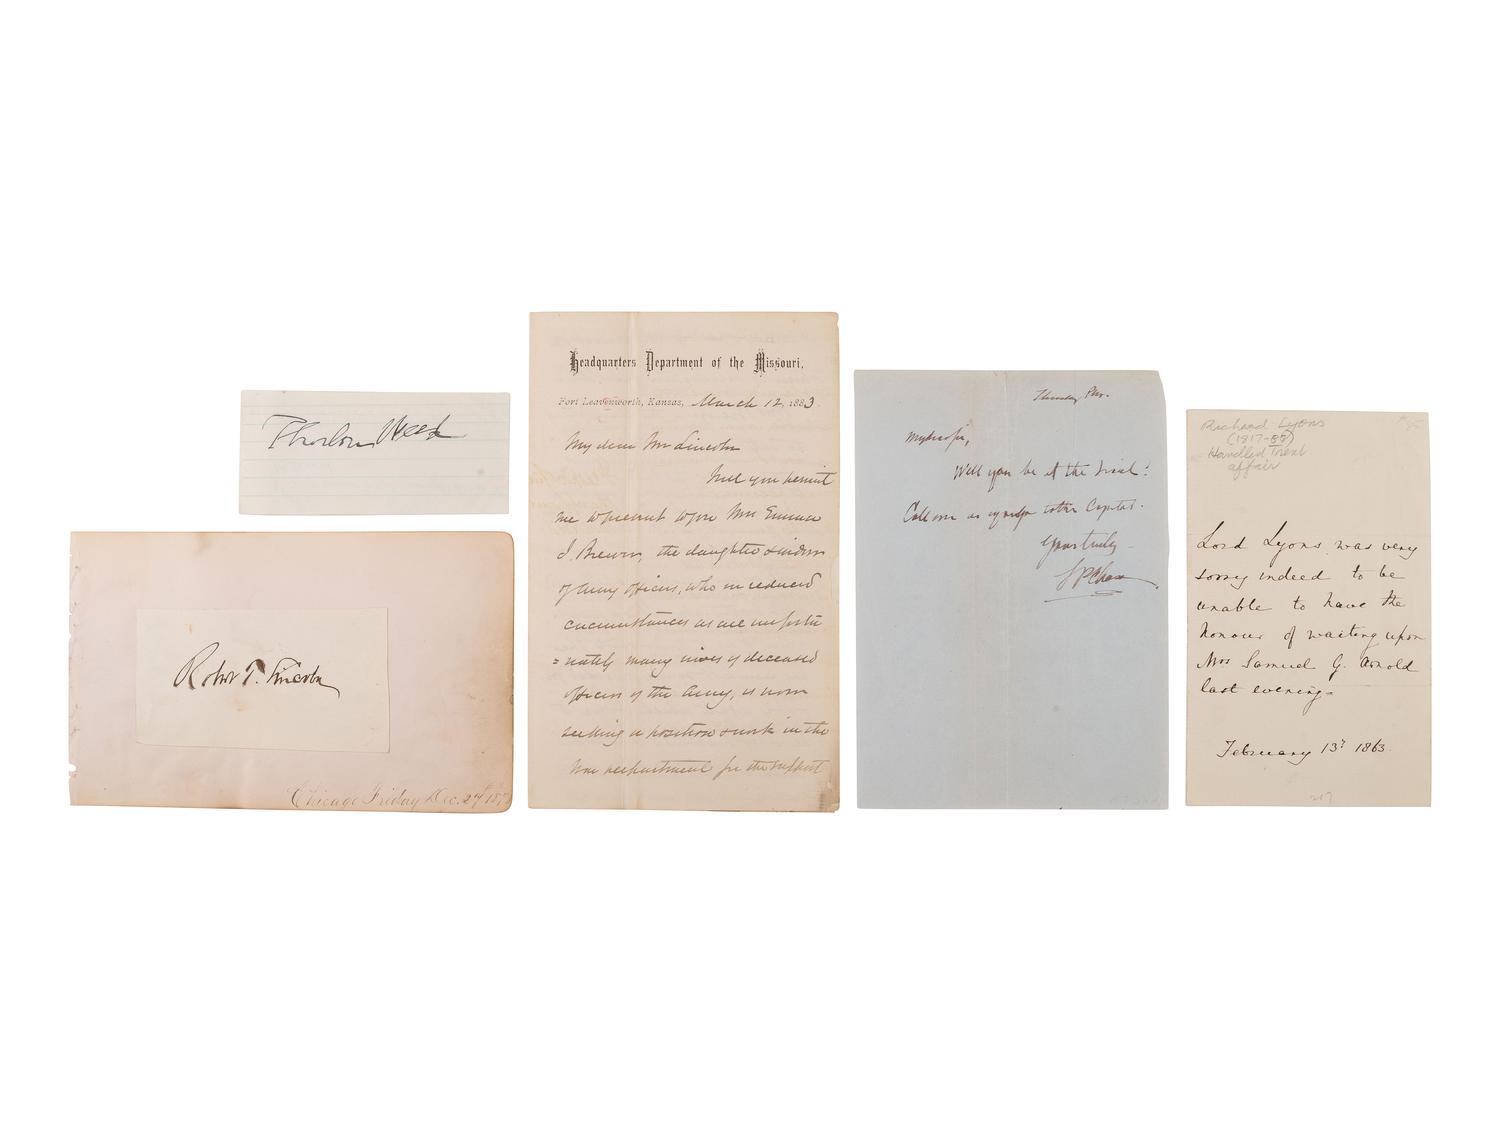 Thurlow Weed
Robert T. Lincoln
Chicago Friday Dec. 24th 187
Headquarters Department of the Missouri,
Fort Leavenworth, Kansas, March 12, 1883.
My dear Mr Lincoln
Will you permit
me to present to you Mrs Emma
J. Brewer, the daughter & widow
of Army officers, who in reduced
circumstances as are unfortu
=nately many wives of deceased
officers of the Army, is now
seeking a position & work in the
War department for the support
Thursday
My dear sir,
Will you be at the trial?
Call me as you go to the Capitol.
Yours truly
S P Chase
Richard Lyons
(1817-87)
Handled Trent
affair
Lord Lyons was very
sorry indeed to be
unable to have the
honour of waiting upon
Mrs Samuel G. Arnold
last evening=
February 13th 1863.
217